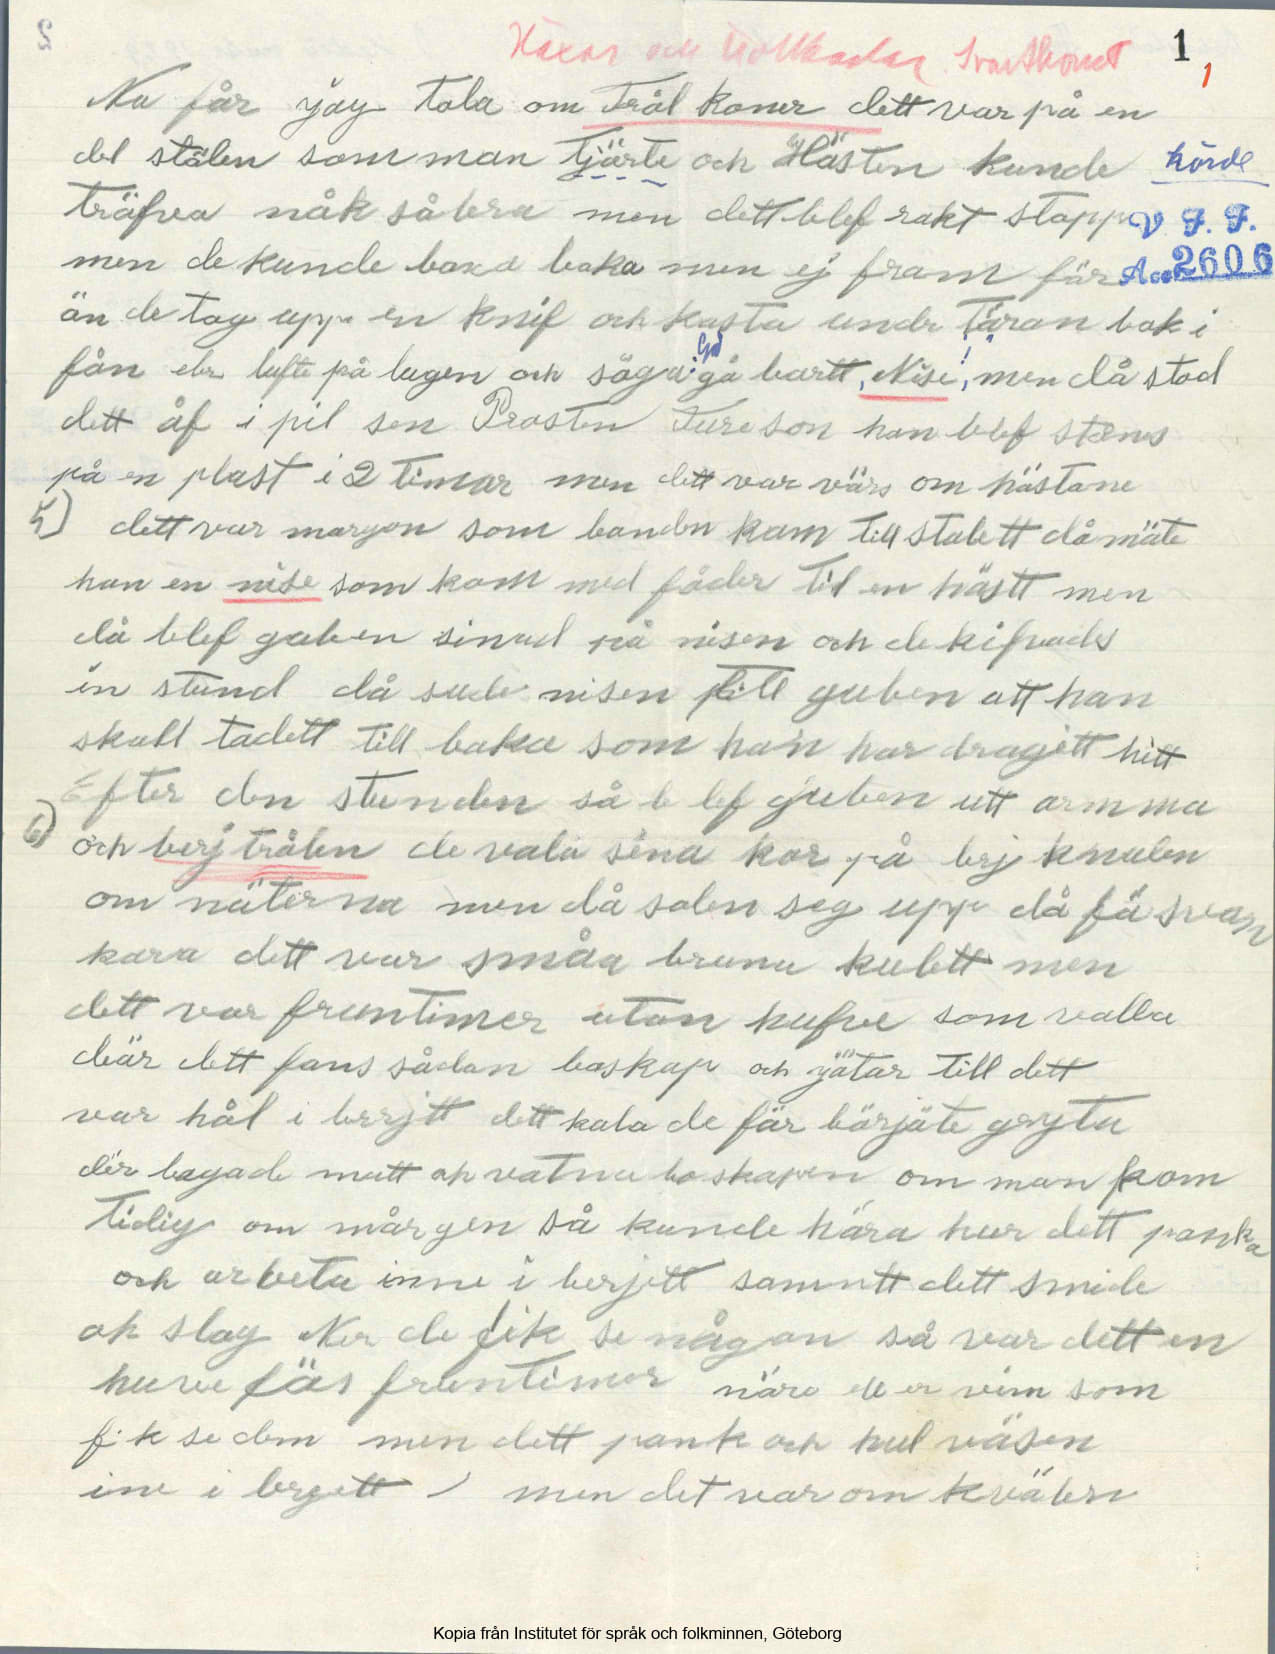 Häxor och trollkarlar Svartkonst 1
1
Nu får jag tala om Trål koner dett var på en
del stälen som man tjärte och Hästen kunde hörde
träfva nåk såbra men dett blef rakt stopp V F. F.
men de kunde baka baka men ej fram før Acc 2606
än de tog upp en knif och kasta undr Täran bak i
fån elr lufte på lagen och säga: gå bartt, Nise!, men då stod
dett åf i pil sen Prosten Tureson han blef stæns
på en plast i 2 timar men dett var värs om hästane
5) dett var margon som banden kam till stalett då mäte
han en nise som kom med fåder til en hästt men
då blef guben sinud på nisen och de kifvades
en stund då sude nisen till guben att han
skall tadett till baka som han har dragitt hitt
Efter den stunden så blef guben utt armma
6) och berj trålen de vala sina kor på berj knalen
om näterna men då solen seg upp då få svan
kara dett var småa bruna kulett men
dett var fruntimer utan hufve som valla
där dett fans sådan baskap och jätar till dett
var hål i berjtt dett kala de får börjäte gryta
där lagade matt ok vatna boskapen om man kom
tidig om mårgen så kunde håra hur dett panka
och arbeta inne i berjett samntt dett smide
ok slag Ner de fik se någon så var dett en
huve läs fruntimer näre de er vim som
fik se dem men dett pank och hul väsen
ine i bergett / men det var om kvälen
Kopia från Institutet för språk och folkminnen, Göteborg